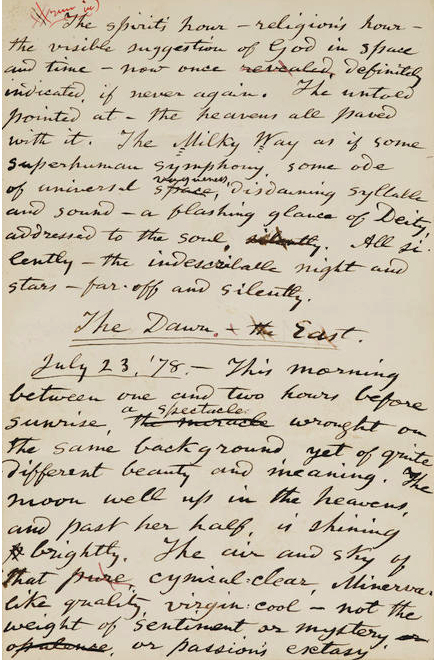 (Run in)
The spirit's hour — religion's hour —
the visible suggestion of God in space
and time — now once revealed, definitely
indicated, if never again. The untold
pointed at — the heavens all paved
with it. The Milky Way as if some
superhuman symphony, some ode
of universal space, vagueness, disdaining syllable
and sound — a flashing glance of Deity,
addressed to the soul, silently. All si-
lently — the indescribable night and
stars — far-off and silently.
The Dawn. — the East.
July 23, '78. — This morning
between one and two hours before
a spectacle
sunrise, the miracle wrought on
the same background, yet of quite
different beauty and meaning. The
moon well up in the heavens,
and past her half, is shining
brightly. The air and sky of
that pure, cynical-clear, Minerva-
like quality, virgin cool — not the
weight of sentiment or mystery, or
opulence, or passion's extasy